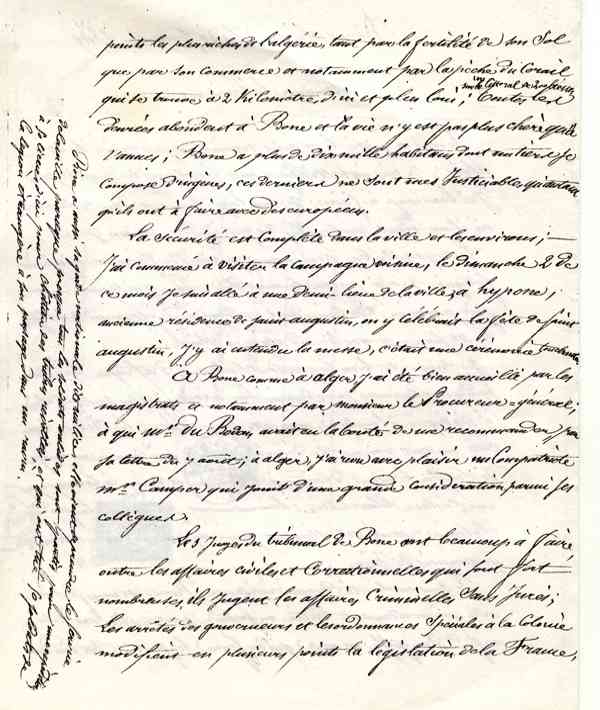 points les plus riches de l'algérie, tant par la fertilité de son Sol
que par son commerce et notamment par la pêche du Corail
sur le littoral de
qui se trouve à 2 Kilomètres d'ici et plus loin; Toutes les
denrées abondent à Bone et la vie n'y est pas plus chère qu'à
Vannes; Bone a plus de dix mille habitans dont un tiers se
Compose d'indigènes, ces derniers ne sont mes Justiciables qu'autant
qu'ils ont à faire avec des européens.
La Sécurité est Complète dans la ville et les environs;
J'ai commencé à visiter la campagne voisine, le dimanche 2 de
ce mois Je suis allé à une demi-lieue de la ville, à hypone,
ancienne résidence de saint augustin, on y célébrait la fête de Saint
augustin. J'y ai entendu la messe, c'était une cérémonie touchante
à Bone comme à alger J'ai été bien accueilli par les
magistrats et notamment par monsieur le Procureur-général;
à qui Mr. du avait eu la bonté de me recommander par
sa lettre du 7 août; à alger, J'ai vu avec plaisir un Compatriote
Mr. Camper qui Jouit d'une grande Considération parmi ses
collègues.
Les 3 Juges du tribunal de Bone ont beaucoup à faire
outre les affaires civiles et Correctionnelles qui sont fort
nombreuses, ils Jugent les affaires Criminelles Sans Jurés;
Les arrêtés des gouverneurs et les ordonnances Spéciales à la Colonie
modifient en plusieurs points la législation de la France,
Bone a aussi sa garde nationale
parce que presque tous les soldats
à d'ici pour
la légion étrangère a son dans un ravin.